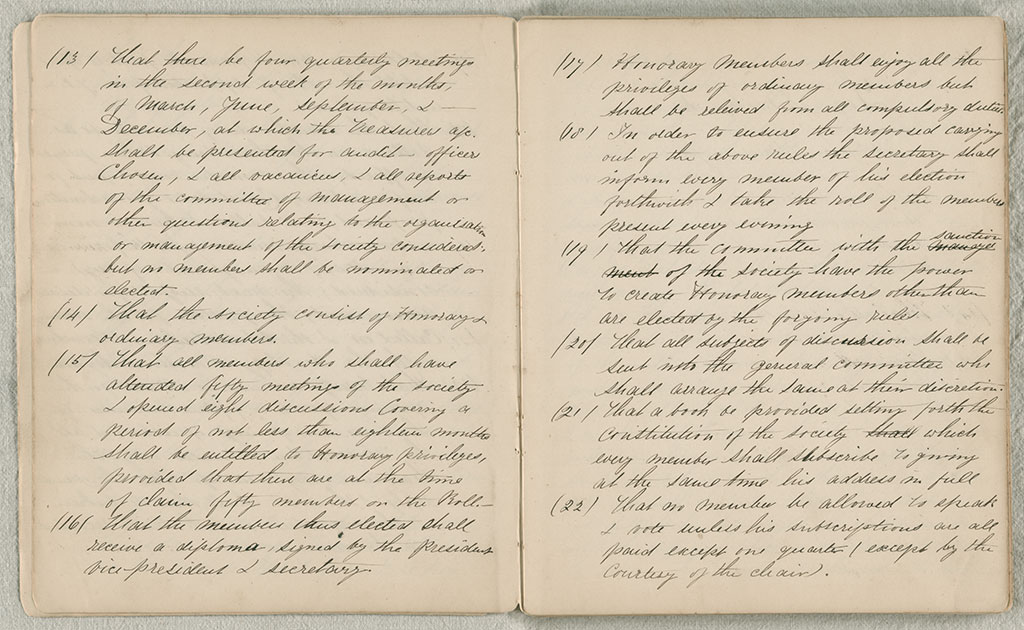 (13) That there be four quarterly meetings
in the second week of the months,
of March, June, September, &
December, at which the Treasurers a/c.
shall be presented for audit – officer
Chosen, & all vacancies, & all reports
of the committee of management or
other questions relating to the organisation
or management of the society considered.
but no members shall be nominated or
elected.
(14) That the society consist of Honorary &
ordinary members.
(15) That all members who shall have
attended fifty meetings of the society
& opened eight discussions Covering a
period of not less than eighteen months
shall be entitled to Honorary privileges,
provided that there are at the time
of claim fifty members on the Roll –
(16) That the members thus elected shall
receive a diploma, signed by the president
vice-president & secretary.
(17) Honorary Members shall enjoy all the
privileges of ordinary members but
shall be releived from all compulsory duties.
(18) In order to ensure the proposed carrying
out of the above rules the secretary shall
inform every member of his election
forthwith & take the roll of the members
present every evening
(19) That the committee with the manage sanction
ment of the society have the power
to create Honorary members other than
are elected by the forgoing rules
(20) That all subjects of discussion shall be
sent into the general committee who
shall arrange the same at their discretion.
(21) That a book be provided setting forth the
Constitution of the society shall which
every member shall subscribe to giving
at the same time his address in full
(22) That no member be allowed to speak
& vote unless his subscriptions are all
paid except one quarter (except by the
Courtesy of the chair).